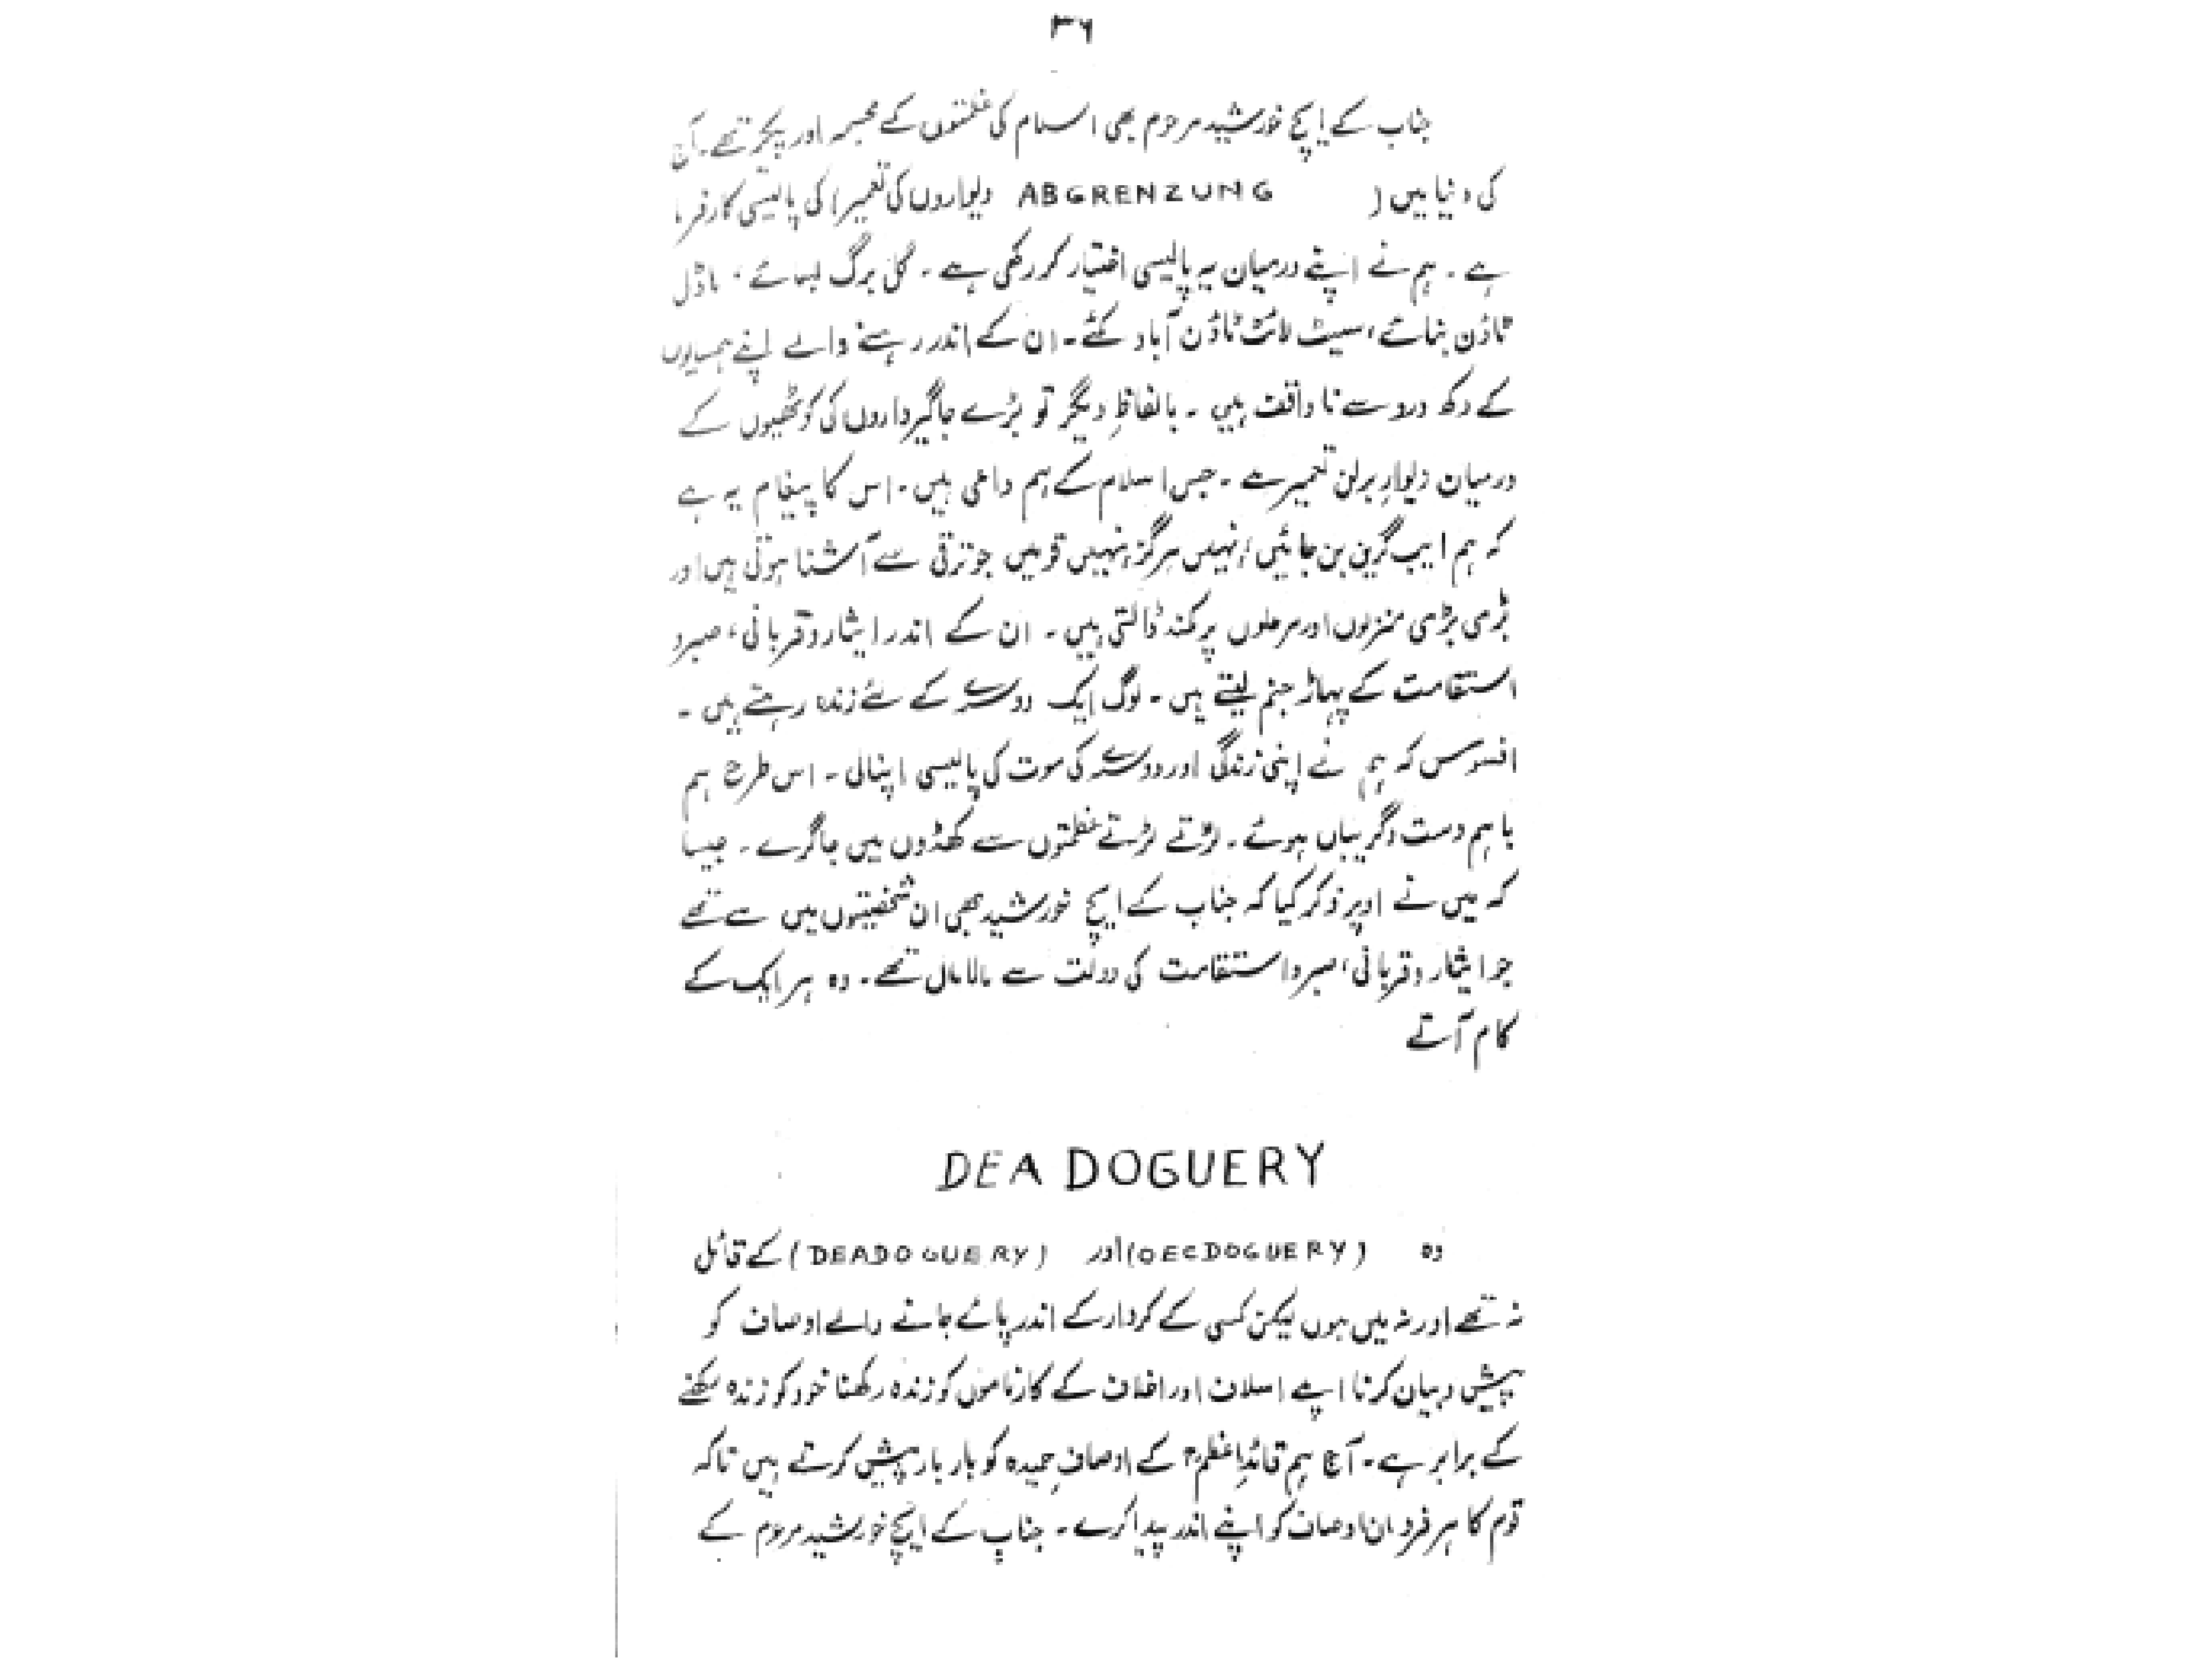 ۳۶
جناب کے ایچ خورشید مرحوم بھی اسلام کی عظمتوں کے مجسمہ اور پیکر تھے۔ آج
کی دنیا میں ( ABGRENZUNG دیواروں کی تعمیر) کی پالیسی کارفرما
ہے ۔ ہم نے اپنے درمیان یہ پالیسی اختیار کر رکھی ہے ۔ گل برگ بسائے ، ماڈل
ٹاؤن بنائے، سیٹ لائٹ ٹاؤن آباد کئے۔ ان کے اندر رہنے والے اپنے ہمسایوں
کے دکھ درد سے نا واقف ہیں ۔ بالفاظِ دیگر تو بڑے جاگیرداروں کی کوٹھیوں کے
درمیان دیوارِ برلن تعمیر ہے ۔ جس اسلام کے ہم داعی ہیں ۔ اس کا پیغام یہ ہے
کہ ہم ایب گرین بن جائیں؛ نہیں ہرگز نہیں قومیں جو ترقی سے آشنا ہوتی ہیں اور
بڑی بڑی منزلوں اور مرحلوں پر کمند ڈالتی ہیں ۔ ان کے اندر ایثار و قربانی، صبر و
استقامت کے پہاڑ جنم لیتے ہیں ۔ لوگ ایک دوسرے کے لئے زندہ رہتے ہیں ۔
افسوس کہ ہم نے اپنی زندگی اور دوسرے کی موت کی پالیسی اپنالی ۔ اس طرح ہم
باہم دست و گریباں ہوئے ۔ لڑتے لڑتے عظمتوں سے کھڈوں میں جاگرے ۔ جیسا
کہ میں نے اوپر ذکر کیا کہ جناب کے ایچ خورشید بھی ان شخصیتوں میں سے تھے
جو ایثار و قربانی، صبر و استقامت کی دولت سے مالا مال تھے۔ وہ ہر ایک کے
کام آتے
DEA DOGUERY
وہ (OECDOGUERY) اور (DEADOGUERY) کے قائل
نہ تھے اور نہ میں ہوں لیکن کسی کے کردار کے اندر پائے جانے والے اوصاف کو
پیش و بیان کرنا اپنے اسلاف اور اخلاف کے کارناموں کو زندہ رکھنا خود کو زندہ رکھنے
کے برابر ہے ۔ آج ہم قائدِاعظمؒ کے اوصافِ حمیدہ کو بار بار پیش کرتے ہیں تاکہ
قوم کا ہر فرد ان اوصاف کو اپنے اندر پیدا کرے ۔ جناب کے ایچ خورشید مرحوم کے